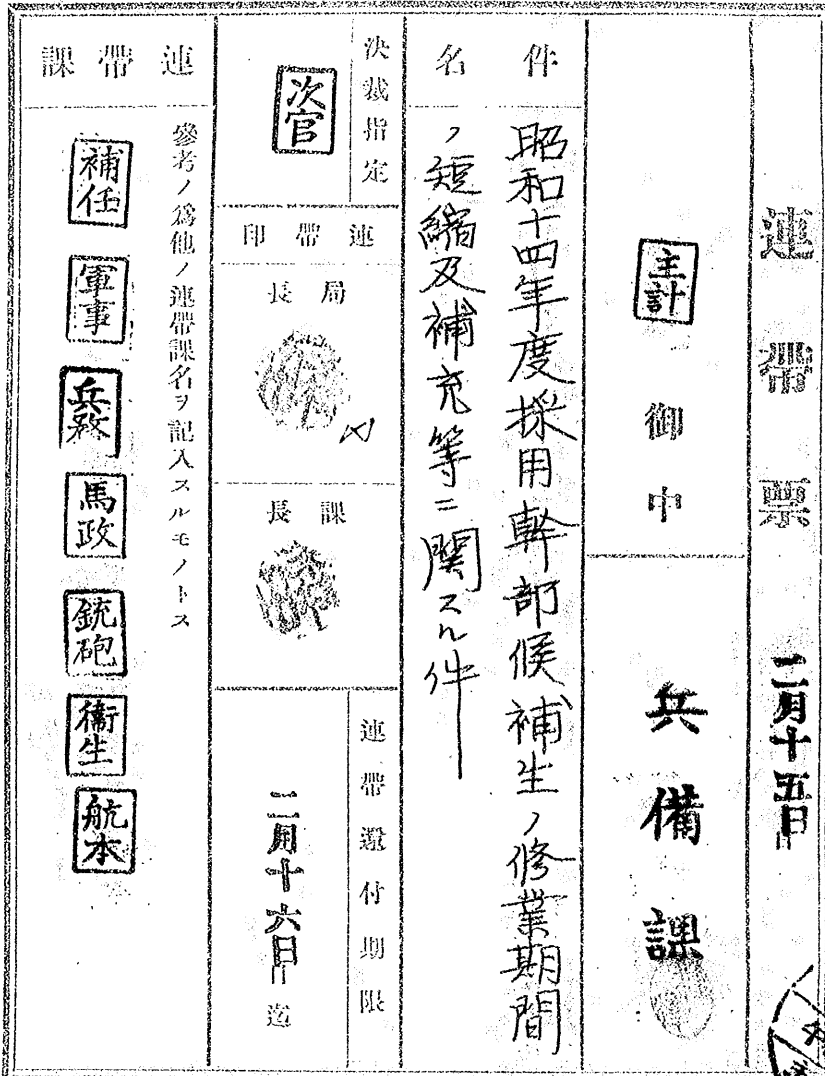 連帶票
二月十五日
主計
御中
兵備課
件名
昭和十四年度採用幹部候補生ノ修業期間
ノ短縮及補充等ニ関スル件
決裁指定
次官
連帶印
局長
課長
連帶還付期限
二月十六日迄
連帶課
參考ノ爲他ノ連帶課名ヲ記入スルモノトス
補任
軍事
兵務
馬政
銃砲
衞生
航本